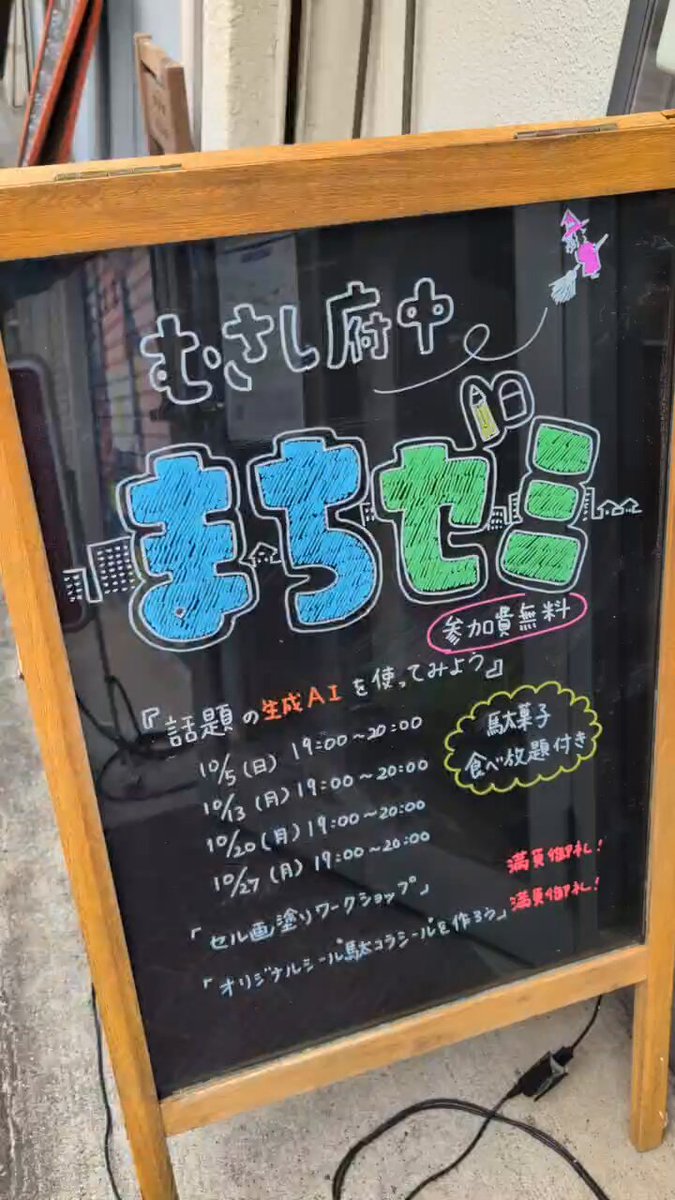 むさし府中
まちゼミ
参加費無料
『話題の生成AIを使ってみよう』
10/5(日) 19:00~20:00
10/13(月) 19:00~20:00
10/20(月) 19:00~20:00
10/27(月) 19:00~20:00
駄菓子
食べ放題付き
「セル画塗りワークショップ」 満員御礼!
「オリジナルシール"駄コラシール"を作ろう」 満員御礼!